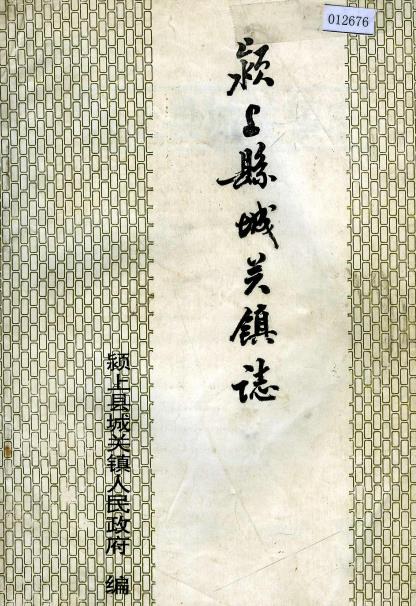 012676
颍上縣城关鎮誌
颍上县城关镇人民政府 编